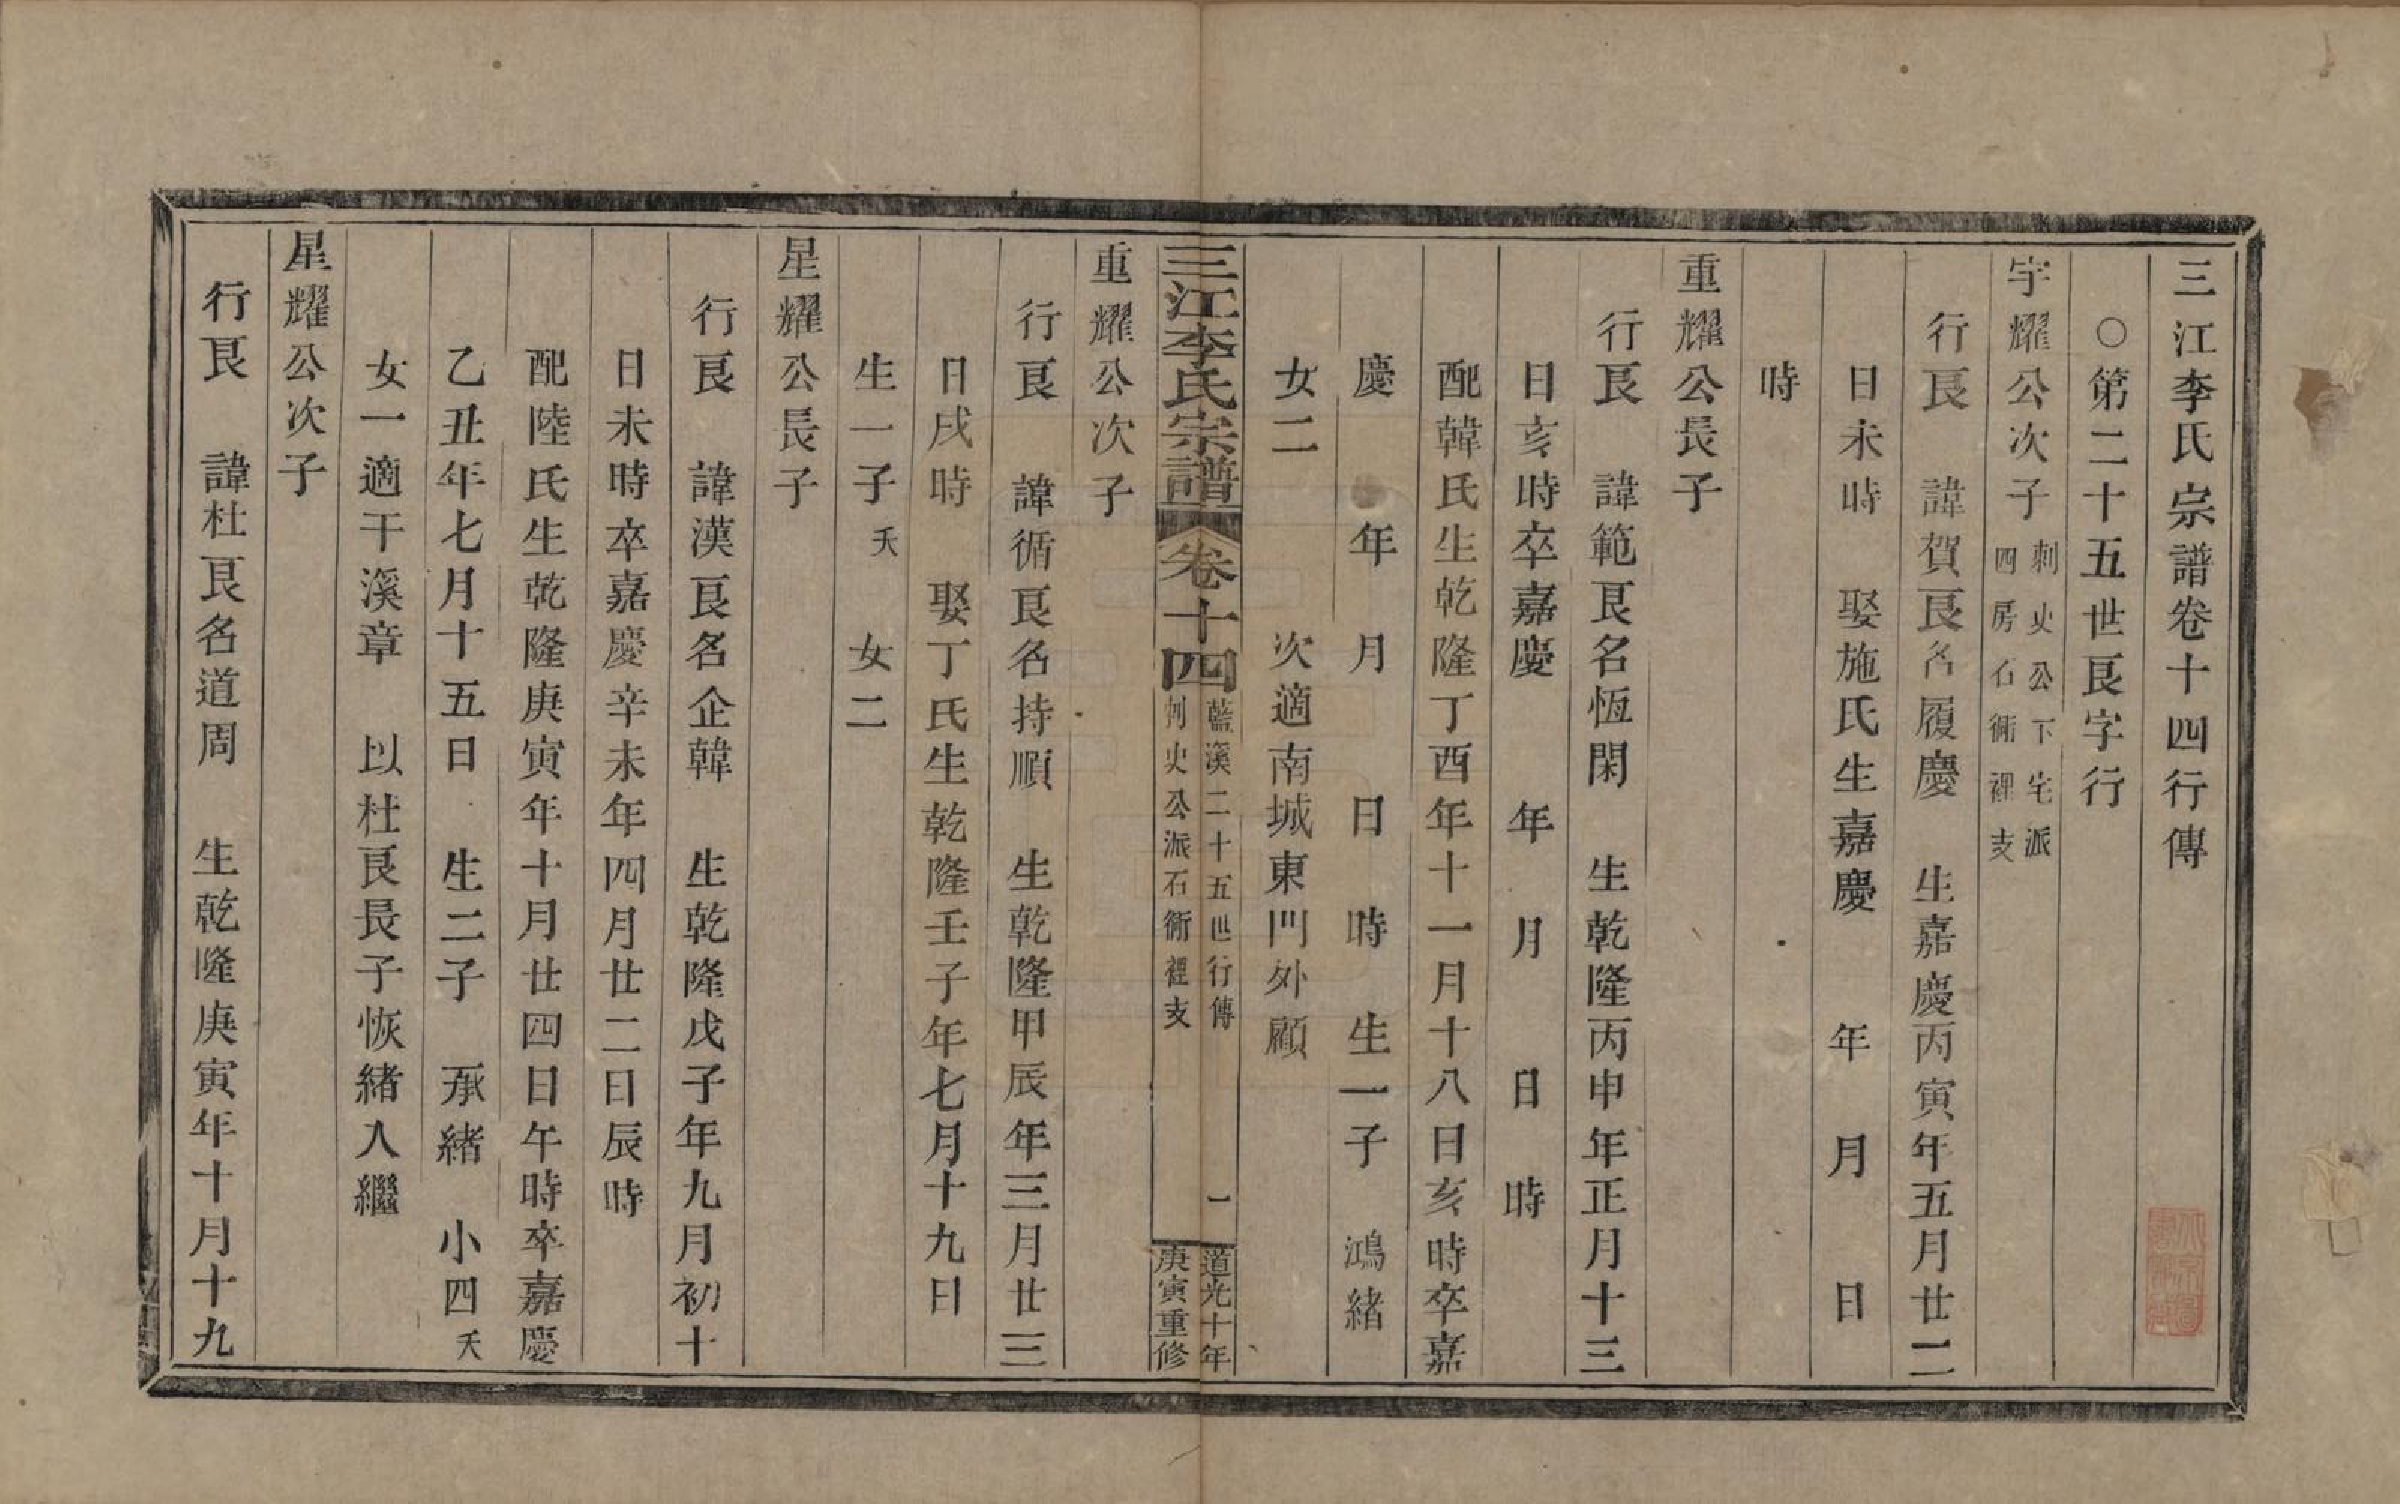 三江李氏宗譜卷十四行傳
○第二十五世艮字行
宇耀公次子 刺史公下宅派 四房石衕裡支
行艮 諱賀艮名履慶 生嘉慶丙寅年五月廿二
日未時 娶施氏生嘉慶 年 月 日
時
重耀公長子
行艮 諱範艮名恆閑 生乾隆丙申年正月十三
日亥時卒嘉慶 年 月 日 時
配韓氏生乾隆丁酉年十一月十八日亥時卒嘉
慶 年 月 日 時 生一子 鴻緒
女二 次適南城東門外顧
三江李氏宗譜 卷十四 藍溪二十五世行傳 刺史公派石衕裡支 一 道光十年 庚寅重修
重耀公次子
行艮 諱循艮名持順 生乾隆甲辰年三月廿三
日戌時 娶丁氏生乾隆壬子年七月十九日
生一子 夭 女二
星耀公長子
行艮 諱漢艮名企韓 生乾隆戊子年九月初十
日未時卒嘉慶辛未年四月廿二日辰時
配陸氏生乾隆庚寅年十月廿四日午時卒嘉慶
乙丑年七月十五日 生二子 承緒 小四 夭
女一適干溪章 以杜艮長子恢緒入繼
星耀公次子
行艮 諱杜艮名道周 生乾隆庚寅年十月十九